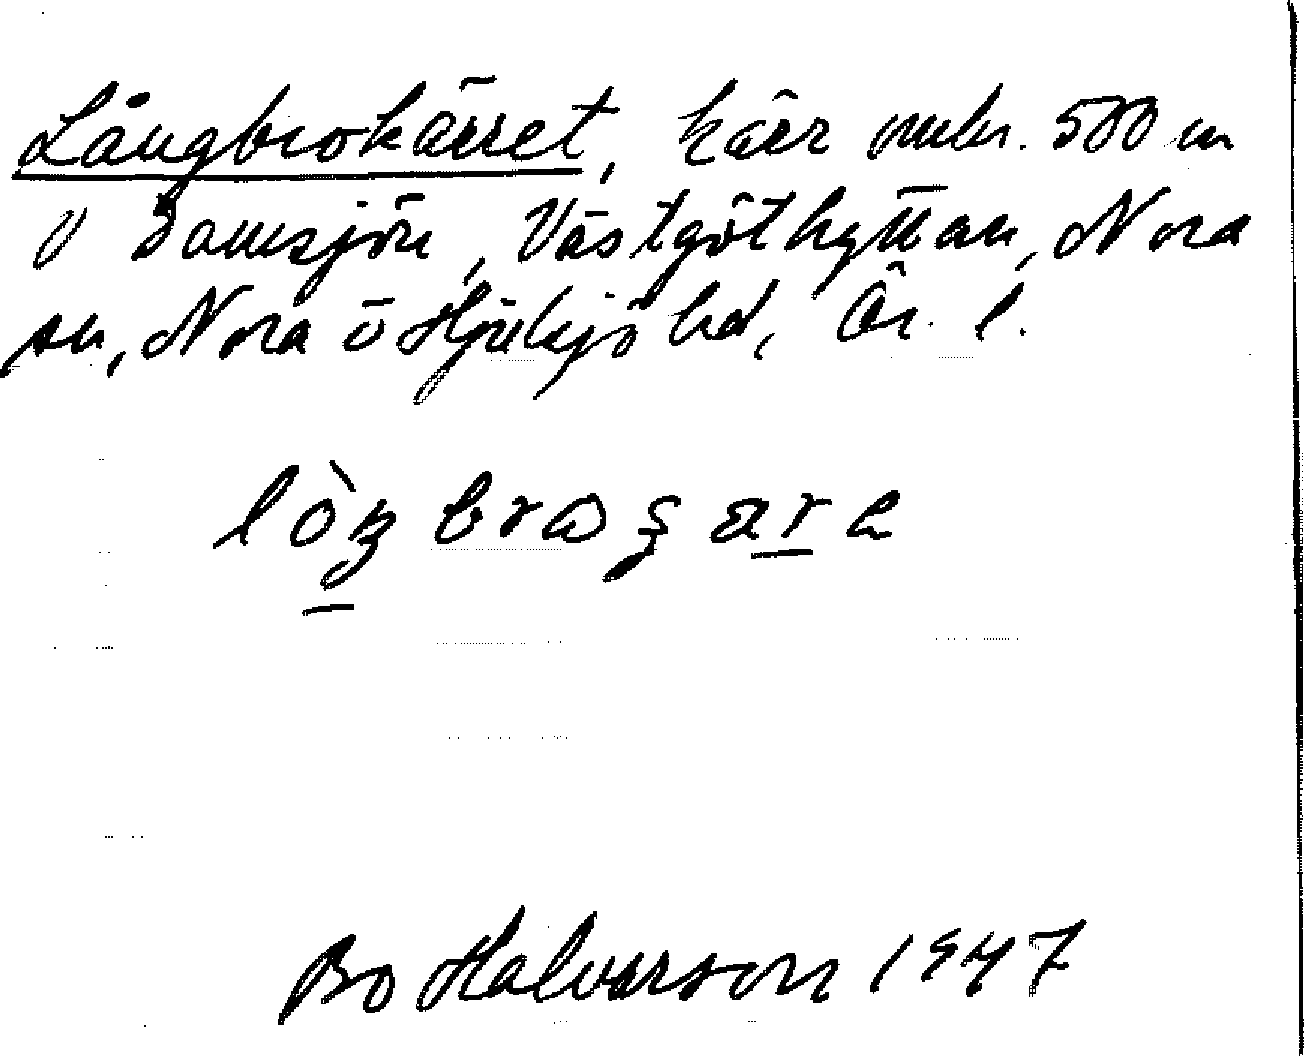 Långbrokärret, kärr omkr. 500 m
V Damsjön, Västgöthyttan, Nora
sn, Nora o Hjulsjö hd, Ör. l.
Bo Halvarson 1947